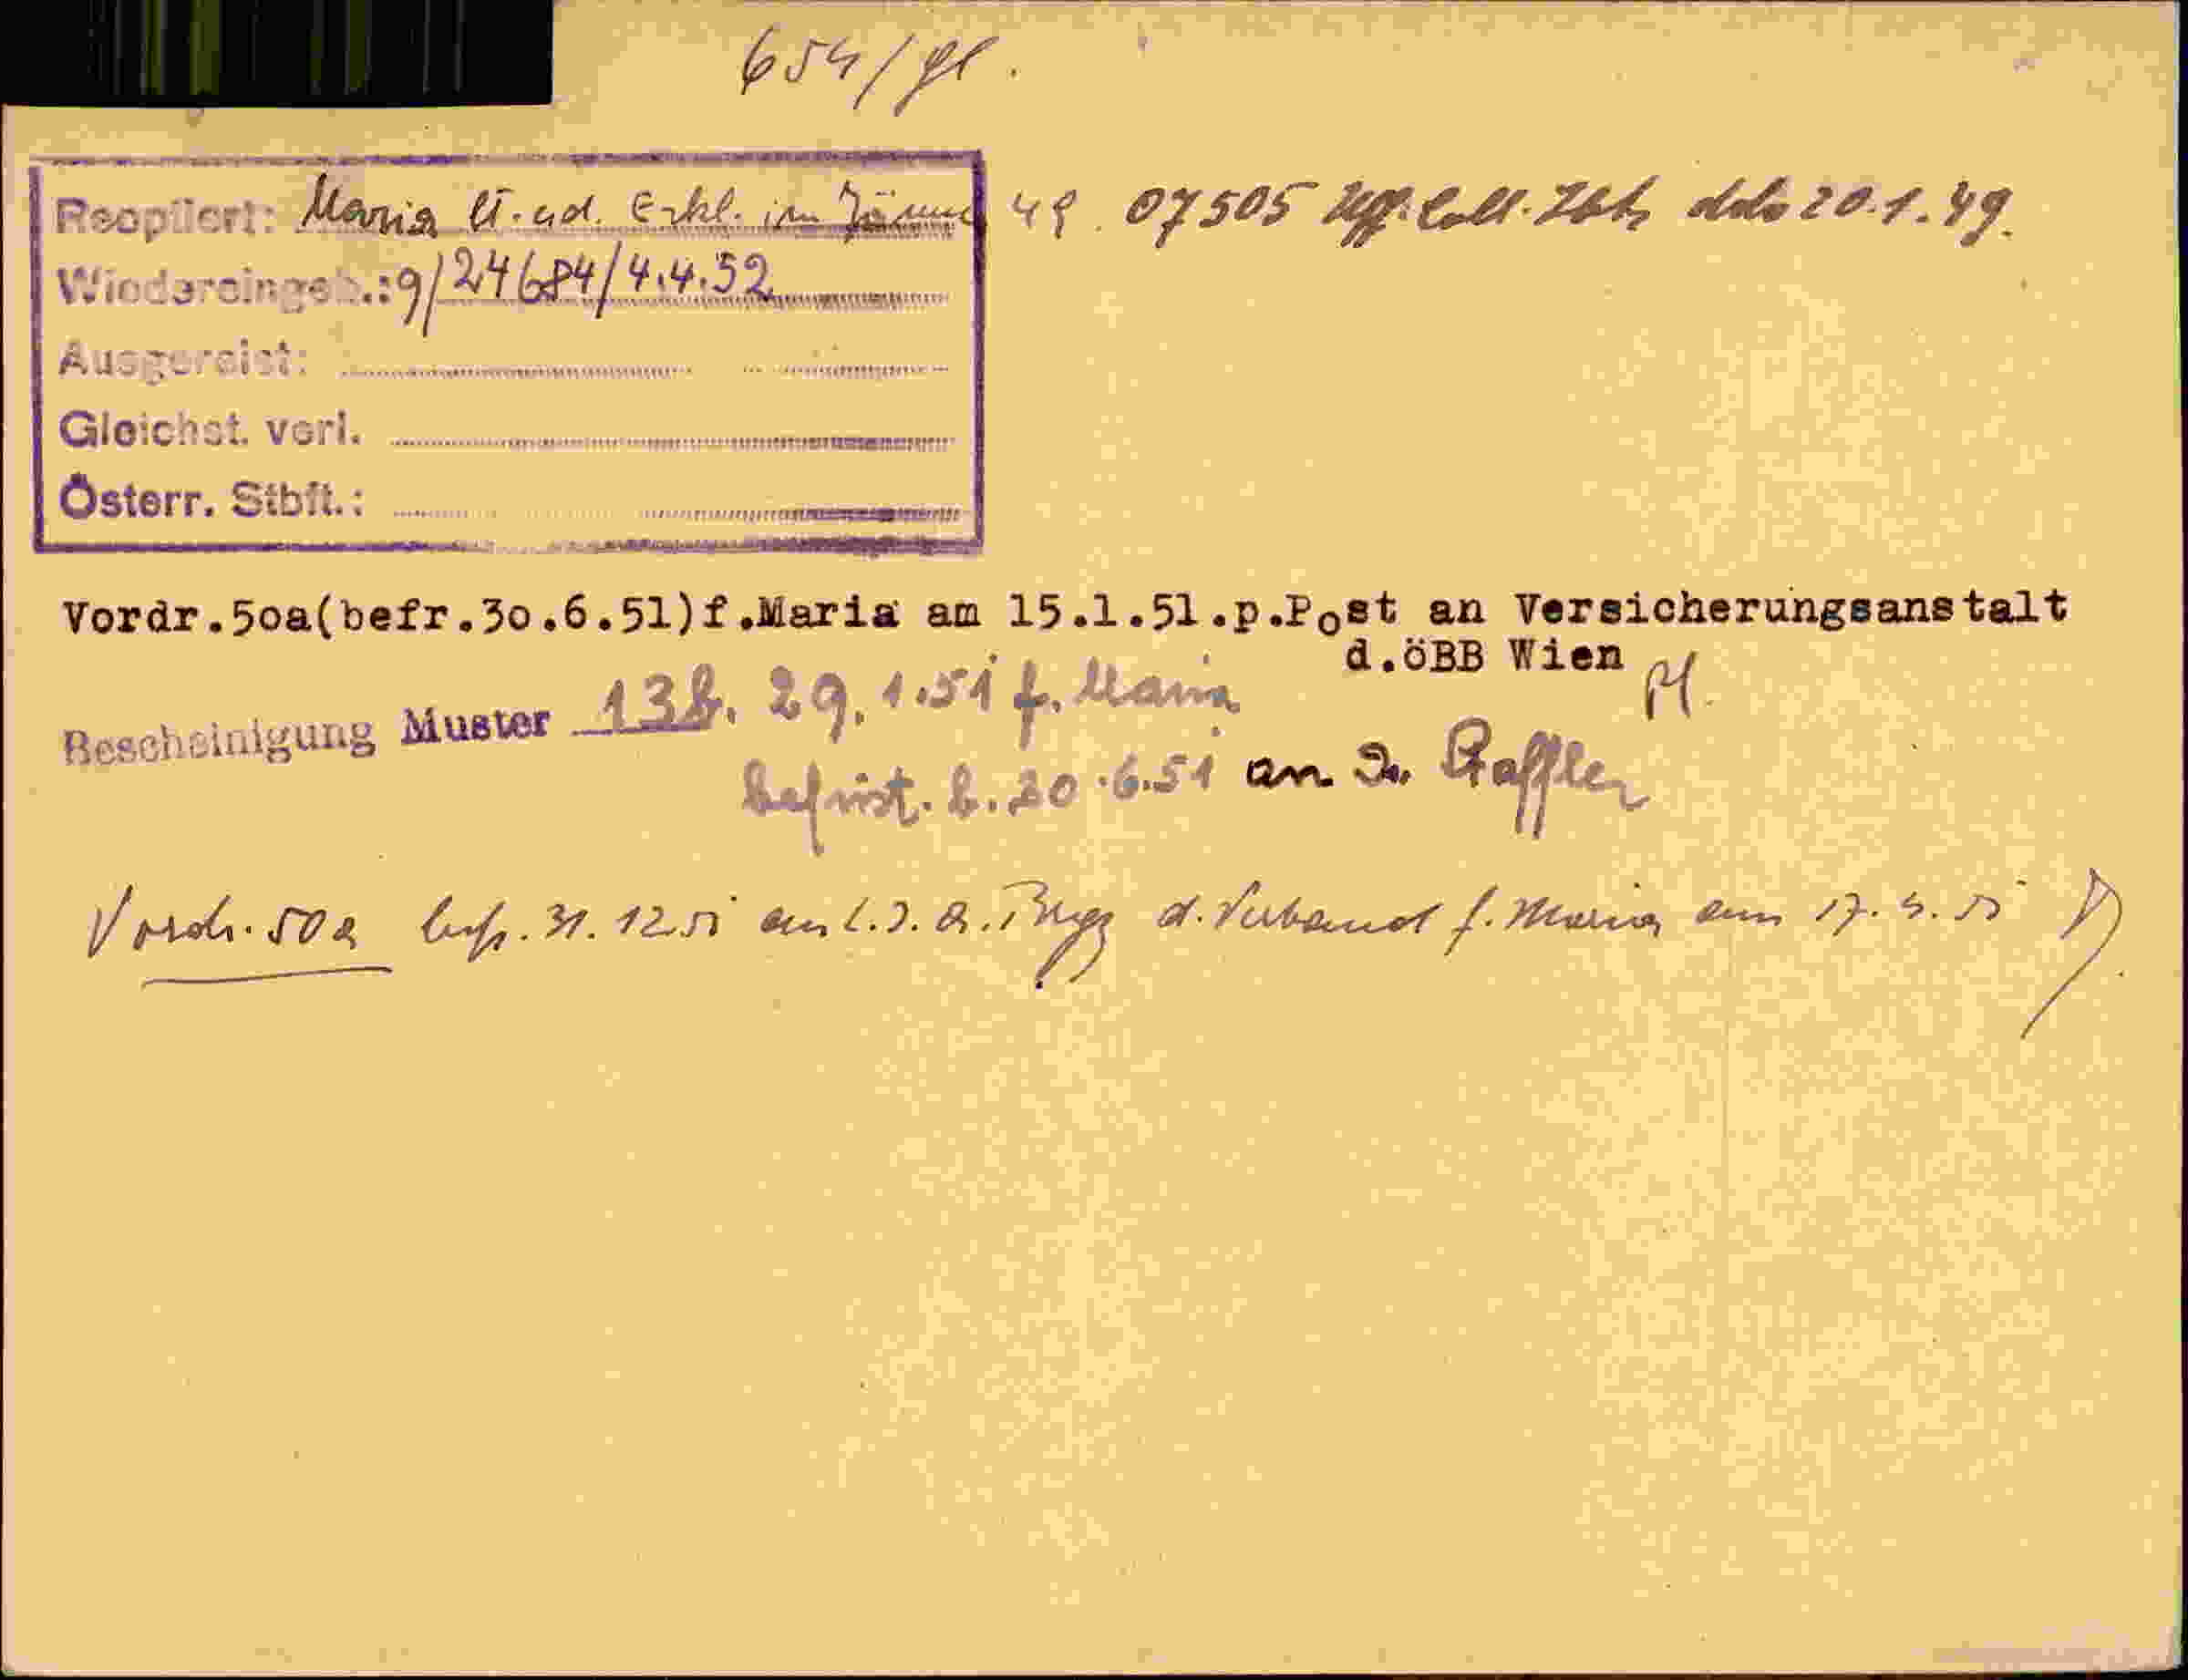 654/
Reoptiert: Maria lt. eid. Erkl. im Jänner 49. 07505 20.1.49.
Wiedereingeb.: 9/24684/4.4.52
Ausgereist:
Gleichst. verl.
Österr. Stbft.:
Vordr.5oa(befr.3o.6.51)f.Maria am 15.1.51.p.Post an Versicherungsanstalt
d.öBB Wien
Bescheinigung Muster 13b. 29.1.51 f. Maria
befrist. b. 30.6.51 an
Vordr. 50a befr. 31.12.51 an d. Verband f. Maria am